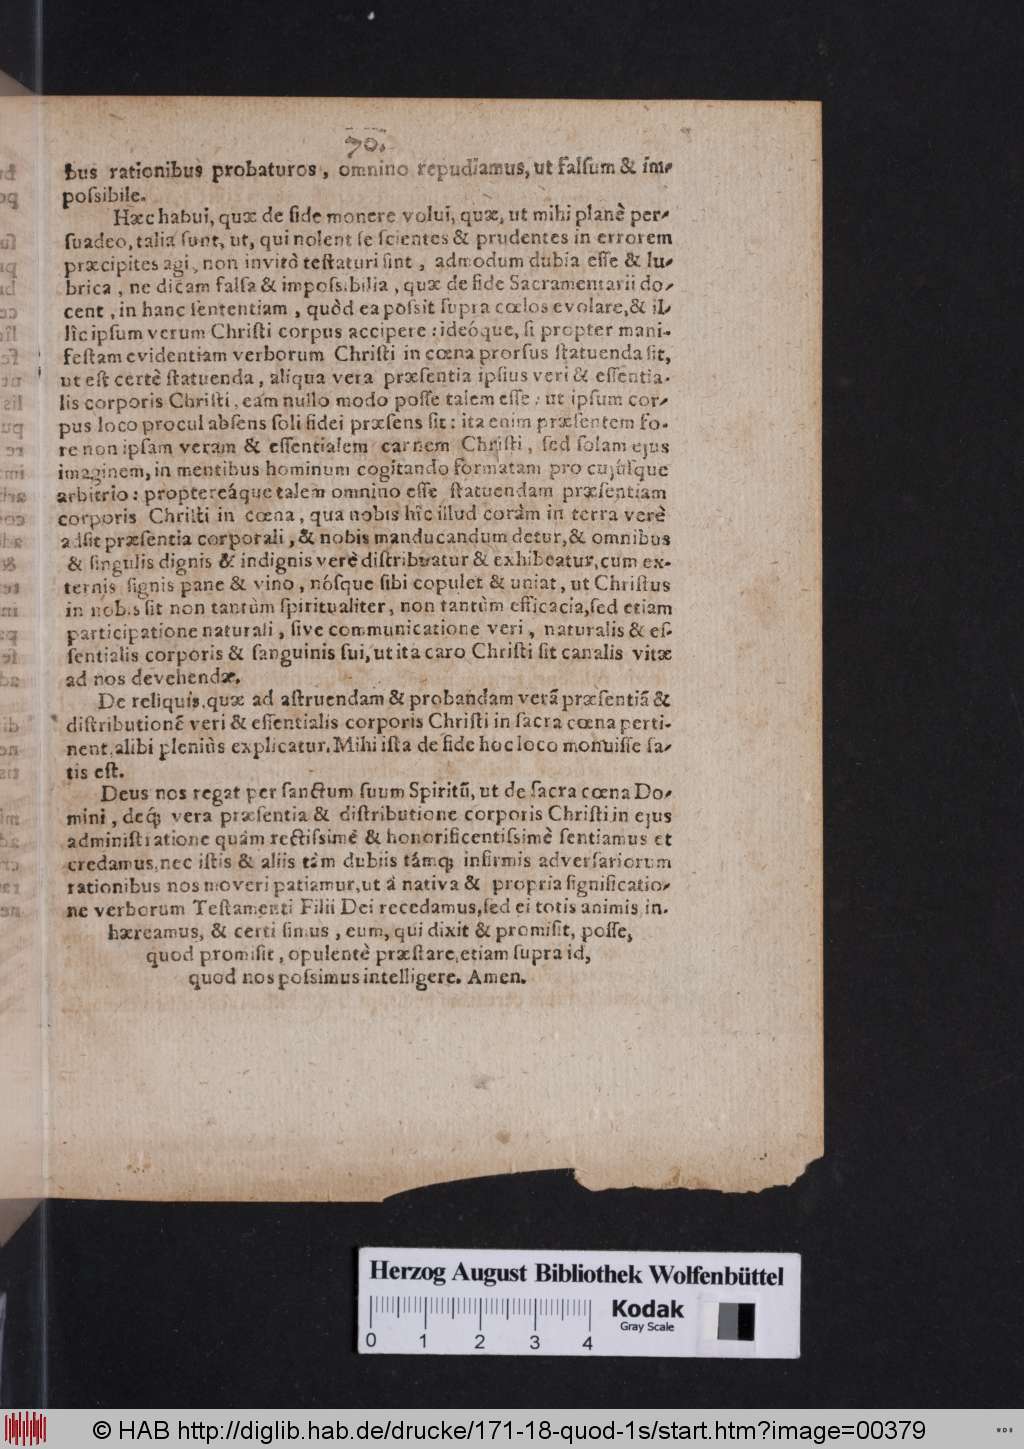 70.
bus rationibus probaturos, omnino repudiamus, ut falſum & im-
poſsibile.
Hæc habui, quæ de fide monere volui, quæ, ut mihi planè per-
ſuadeo, talia ſunt, ut, qui nolent ſe ſcientes & prudentes in errorem
præcipites agi, non invitò teſtaturi ſint, admodum dubia eſſe & lu-
brica, ne dicam falſa & impoſsibilia, quæ de fide Sacramentarii do-
cent, in hanc ſententiam, quòd ea poſsit ſupra cœlos evolare, & il-
lîc ipſum verum Chriſti corpus accipere: ideóque, ſi propter mani-
feſtam evidentiam verborum Chriſti in cœna prorſus ſtatuenda ſit,
ut eſt certè ſtatuenda, aliqua vera præſentia ipſius veri & eſſentia-
lis corporis Chriſti, eam nullo modo poſſe talem eſſe, ut ipſum cor-
pus loco procul abſens ſoli fidei præſens ſit: ita enim præſentem fo-
re non ipſam veram & eſſentialem carnem Chriſti, ſed ſolam ejus
imaginem, in mentibus hominum cogitando formatam pro cujúſque
arbitrio: proptereáque talem omnino eſſe ſtatuendam præſentiam
corporis Chriſti in cœna, qua nobis hîc illud coràm in terra verè
adſit præſentia corporali, & nobis manducandum detur, & omnibus
& ſingulis dignis & indignis verè diſtribuatur & exhibeatur, cum ex-
ternis ſignis pane & vino, nóſque ſibi copulet & uniat, ut Chriſtus
in nobis ſit non tantùm ſpiritualiter, non tantùm efficacia, ſed etiam
participatione naturali, ſive communicatione veri, naturalis & eſ-
ſentialis corporis & ſanguinis ſui, ut ita caro Chriſti ſit canalis vitæ
ad nos devehendæ.
De reliquis, quæ ad aſtruendam & probandam verã præſentiã &
diſtributionẽ veri & eſſentialis corporis Chriſti in ſacra cœna perti-
nent, alibi pleniùs explicatur. Mihi iſta de fide hoc loco monuiſſe ſa-
tis eſt.
Deus nos regat per ſanctum ſuum Spiritũ, ut de ſacra cœna Do-
mini, deq́; vera præſentia & diſtributione corporis Chriſti in ejus
adminiſtratione quàm rectiſsimè & honorificentiſsimè ſentiamus et
credamus, nec iſtis & aliis tàm dubiis támq; infirmis adverſariorum
rationibus nos moveri patiamur, ut á nativa & propria ſignificatio-
ne verborum Teſtamenti Filii Dei recedamus, ſed ei totis animis in-
hæreamus, & certi ſimus, eum, qui dixit & promiſit, poſſe,
quod promiſit, opulentè præſtare, etiam ſupra id,
quod nos poſsimus intelligere. Amen.
Herzog August Bibliothek Wolfenbüttel
0 1 2 3 4
Kodak
Gray Scale
© HAB http://diglib.hab.de/drucke/171-18-quod-1s/start.htm?image=00379